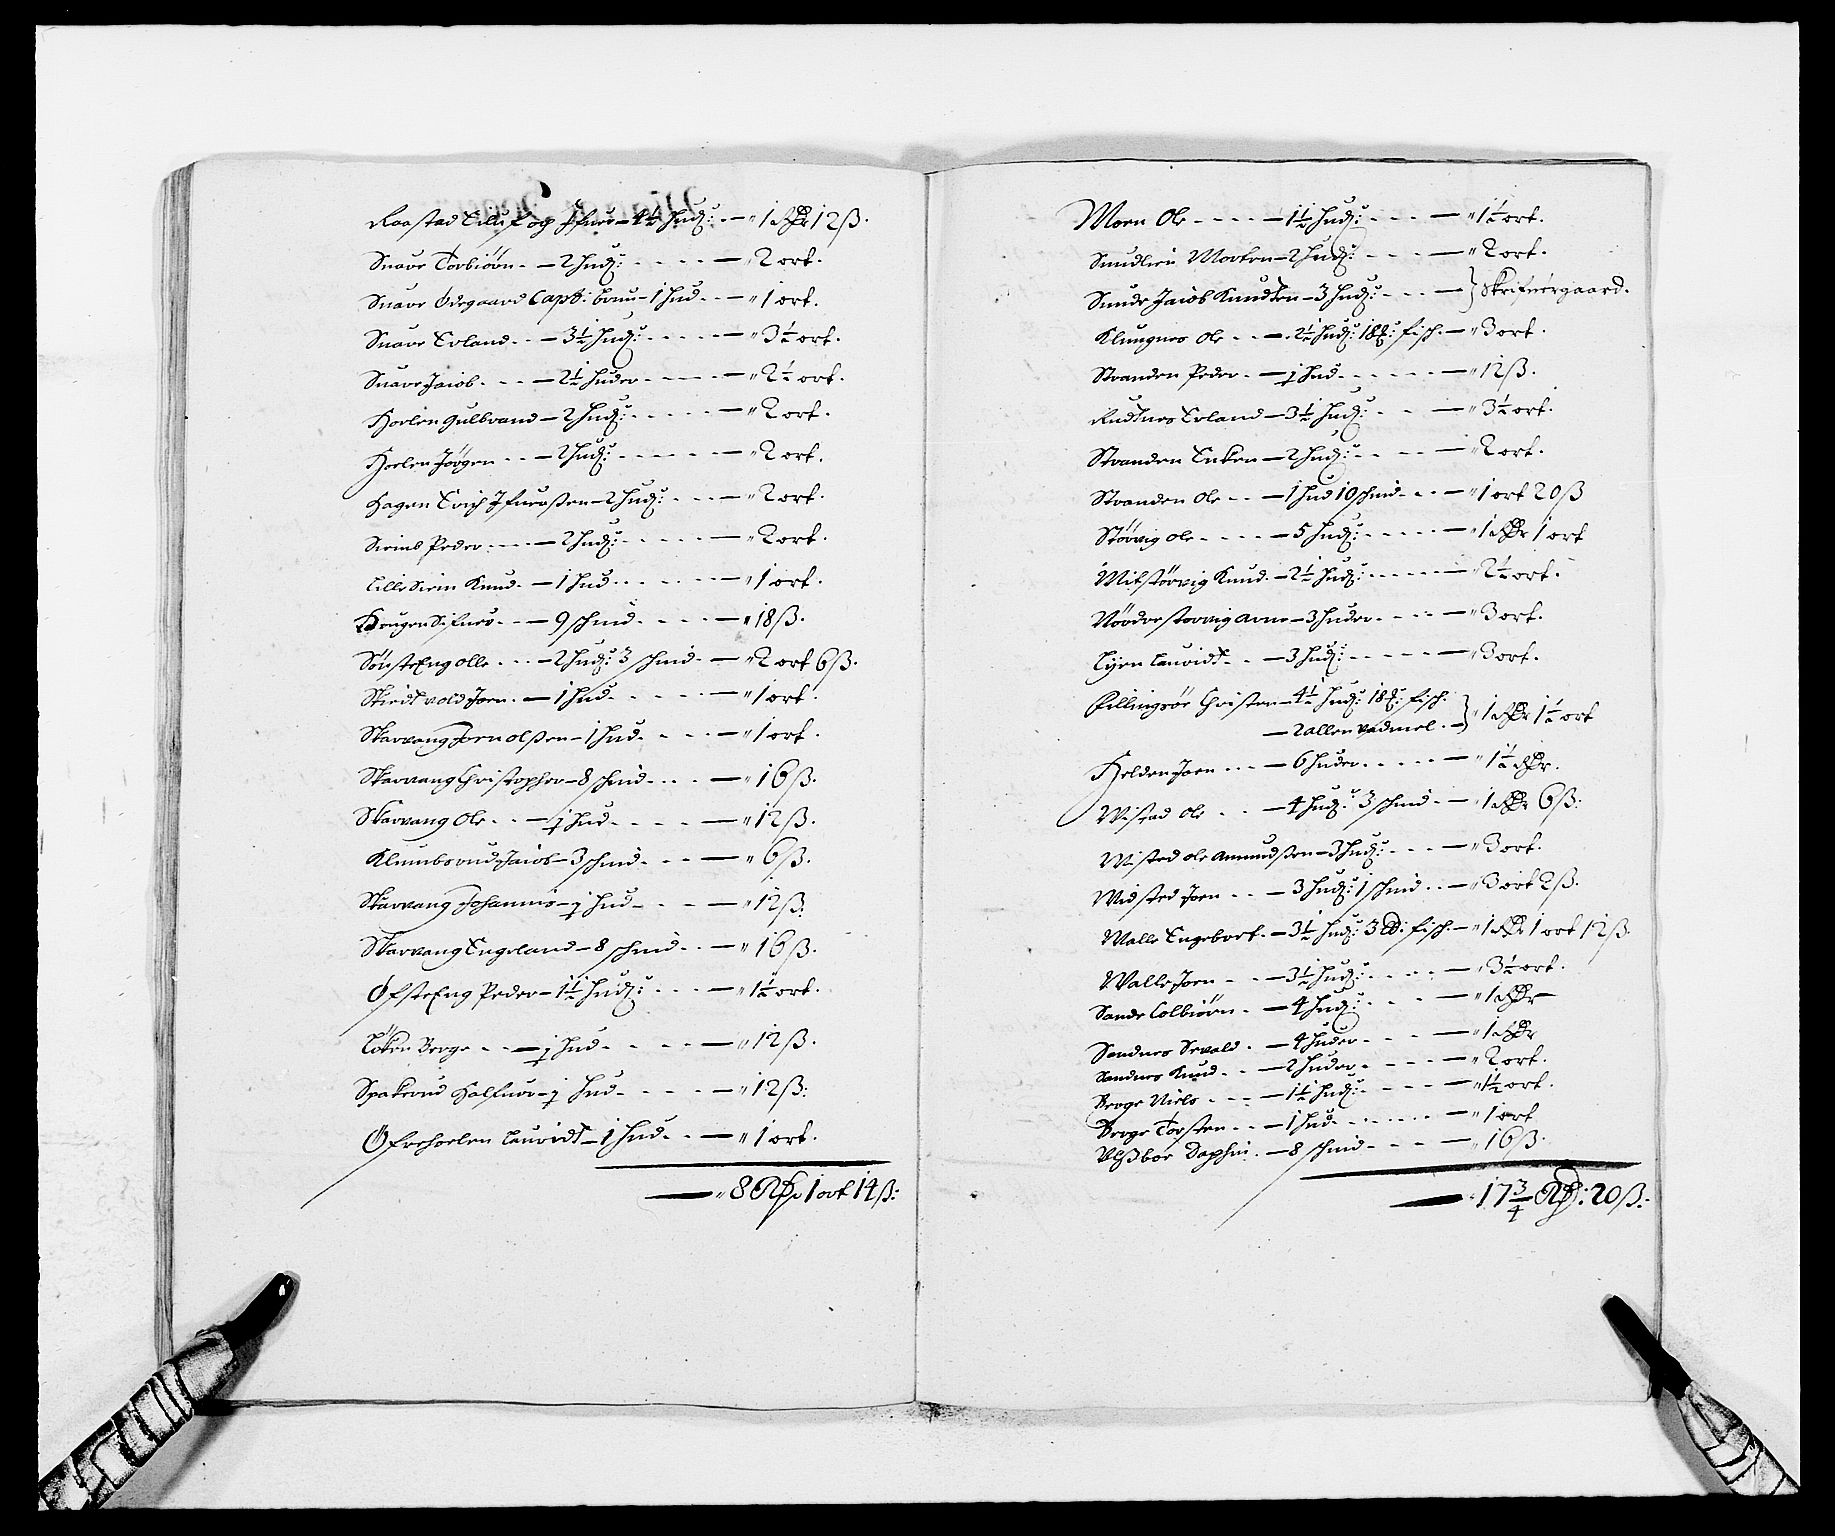 Raastad Elluf og Ifuer – 4½ hud: – – " 1 Rdr 12 ß.
Snave Torbiörn. – 2 hud: – – – – " 2 ort.
Snave Ödegaard Capt: bruu – 1 hud. – – " 1 ort.
Snave Erland. – – 3½ hud: – – – – " 3½ ort.
Snave Jacob. – – – 2½ huder – – – – " 2½ ort.
Horlen Gulbrand – 2 hud: – – – – " 2 ort.
Horlen Jörgen – – – 2 hud: – – – – " 2 ort.
Hagen Erich Ifuerßen – 2 hud: – – – " 2 ort.
Siem Peder. – – – 2 hud: – – – – " 2 ort.
Lille Siem Knud. – 1 hud – – – – " 1 ort.
Haugen Sifuer. – – – 9 schind – – – – " 18 ß.
SönstEng Olle. – – – 2 hud: 3 schind. – " 2 ort 6 ß.
Skiedtvold Joen. – 1 hud – – – – " 1 ort.
Skarvang Joen Olßen – 1 hud. – – – " 1 ort.
Skarvang Christopher – 8 schind. – – – " 16 ß.
Skarvang Ole. – – – ½ hud – – – – " 12 ß.
Klumbsrud Jacob – 3 schind. – – – " 6 ß.
Skarvang Johannis – ½ hud – – – – " 12 ß:
Skarvang Engeland – 8 schind. – – " 16 ß.
ÖfstEng Peder – 1½ hud: – – – " 1½ ort.
Löken Berge – – – ½ hud – – – – " 12 ß.
Spakrud Halfuor – ½ hud – – – – " 12 ß:
Öfrehorlen Lauridt – 1 hud – – – " 1 ort.
– " 8 Rdr 1 ort 14 ß:
Moen Ole – – – – 1½ hud: – – – – " 1½ ort.
Smidlien Morten – 2 hud: – – – " 2 ort.
Sunde Jacob Knudsen – 3 hud: – – – } Skrifuergaard.
Klungnes Ole – – – 2½ hud: 18 : fisch. – " 3 ort.
Stranden Peder. – ½ hud – – – – " 12 ß.
Rudtnes Erland – 3½ hud: – – – " 3½ ort.
Stranden Enken – 2 hud: – – – – " 2 ort.
Stranden Ole – – – 1 hud 10 schind – – – " 1 ort 20 ß
Störvig Ole – – – – 5 hud: – – – – " 1 Rdr 1 ort
Mitstörvig Knud. – 2½ hud: – – – – " 2½ ort.
Nördrestorvig Arne – 3 huder. – – – " 3 ort.
Lijen Lauridt – – 3 hud: – – – – " 3 ort.
Killingröe Christen – 4½ hud: 18 : fisch.
– 2 allen vadmel. – } " 1 Rdr 1½ ort
Helden Joen – – – 6 huder. – – – – " 1½ Rdr.
Wistad Ole – – – 4 hud: 3 schind. – " 1 Rdr 6 ß:
Wisted Ole Amundßen – 3 hud: – – – " 3 ort.
Widsted Joen – – – 3 hud: 1 schind. – – " 3 ort 2 ß.
Walle Engebort. – 3½ hud: 3 : fisch. – " 1 Rdr 1 ort 12 ß.
Walle Joen – – – 3½ hud: – – – – " 3½ ort.
Sande Colbiörn – 4 hud: – – – " 1 Rdr –
Sandnes Sevald. – 4 huder – – – " 1 Rdr
Sandnes Knud. – – 2 huder. – – – " 2 ort.
Berge Niels – – – – 1½ hud: – – – – " 1½ ort.
Berge Torsten – – – 1 hud – – – – " 1 ort
Daphin. – 8 schind – – – – " 16 ß.
– " 17¾ Rdr: 20 ß: